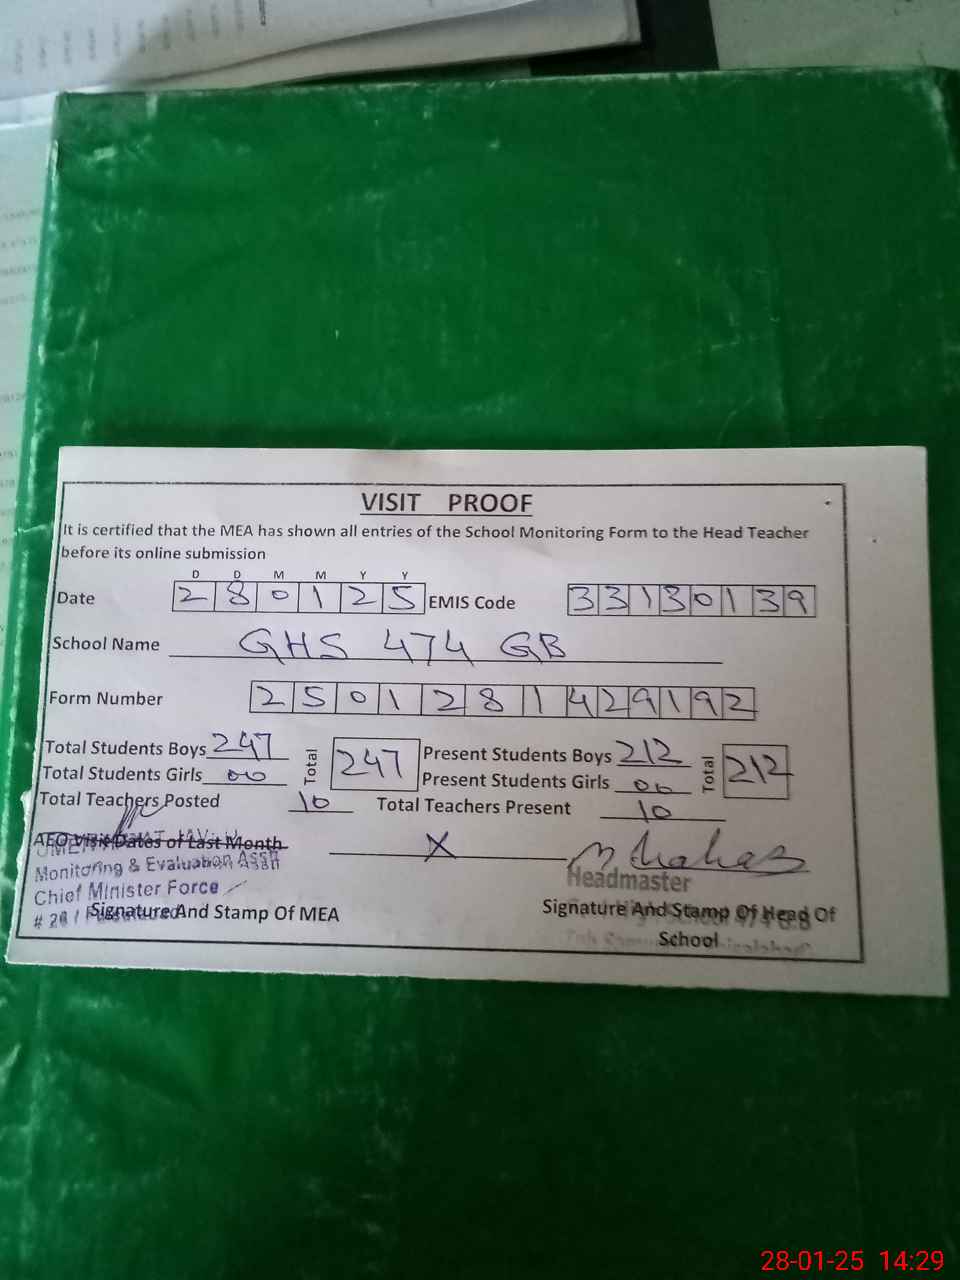 VISIT PROOF
It is certified that the MEA has shown all entries of the School Monitoring Form to the Head Teacher
before its online submission
D D M M Y Y
Date 280125 EMIS Code 33130139
School Name GHS 474 GB
Form Number 2501281429192
Total Students Boys 247 Total 247 Present Students Boys 212 Total 212
Total Students Girls 00 Present Students Girls 00
Total Teachers Posted 10 Total Teachers Present 10
AEO Visit Dates of Last Month X
Monitoring & Evaluation Asstt
Chief Minister Force
Headmaster
Signature And Stamp Of MEA
Signature And Stamp Of Head Of
School
28-01-25 14:29